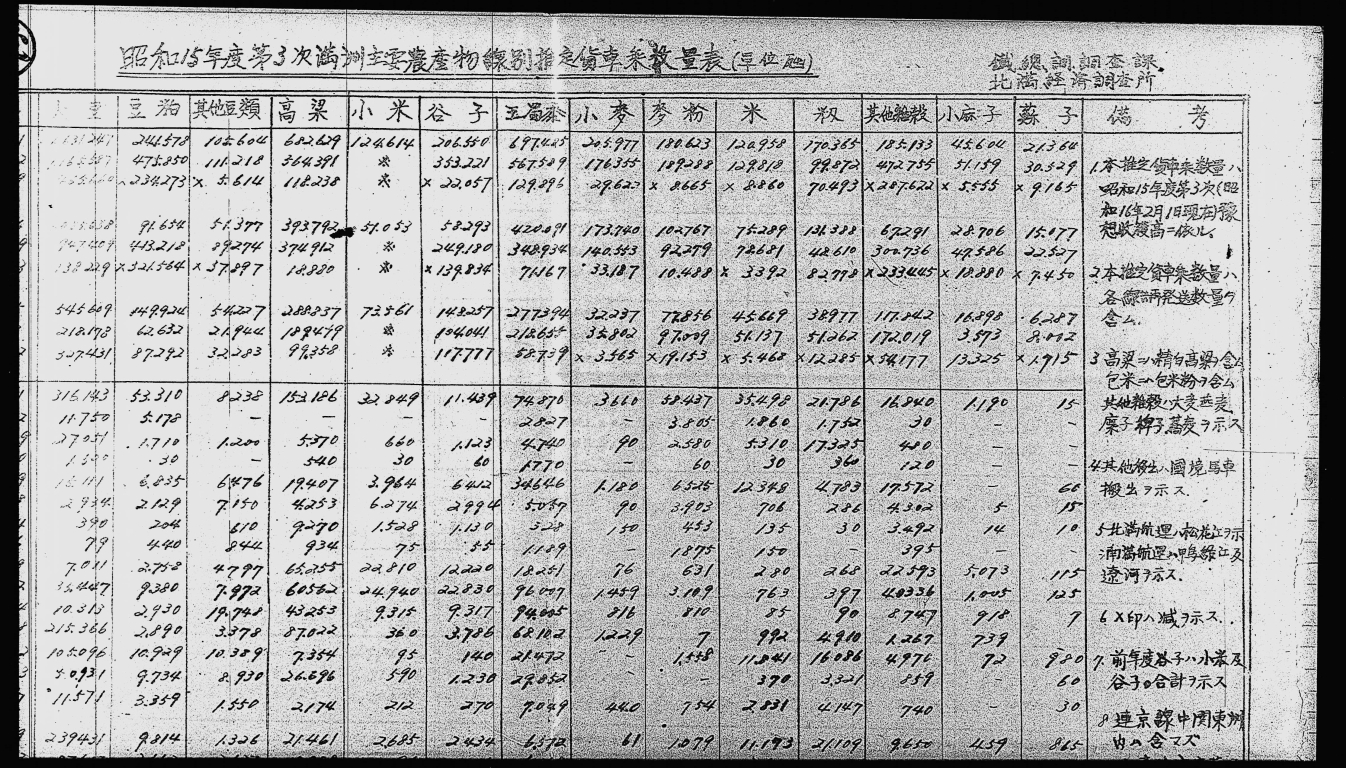 昭和15年度第3次満洲主要農産物線別推定貨車乗数量表(單位瓲)
鐵.總.調.調査課.
北満経済調査所
豆粕 其他豆類 高粱 小米 谷子 玉蜀黍 小麥 麥粉 米 籾 其他雜穀 小麻子 蘇子 備考
241.578 105.604 682.629 124.614 206.550 697.425 205.977 180.623 120.958 170.365 185.133 45.604 21.364
475.850 111.218 564.391 ※ 353.221 567.589 176.355 189.288 129.818 99.872 472.755 51.159 30.529
234.273 × 5.614 118.238 ※ × 22.057 129.896 29.622 × 8.665 × 8.860 70.493 × 287.622 × 5.555 × 9.165
91.654 51.377 393.792 51.053 58.293 420.091 173.740 102.767 75.289 131.388 67.291 28.706 15.077
413.218 89.274 374.912 ※ 249.180 348.934 140.553 92.279 78.681 48.610 300.736 47.586 22.527
138.229 × 321.564 × 37.897 18.880 ※ × 139.834 71.167 33.187 10.488 × 3.392 82.778 × 233.445 × 18.880 × 7.450
545.609 149.924 54.227 288.837 73.561 148.257 277.394 32.237 77.856 45.669 38.977 117.842 16.898 6.287
218.178 62.632 21.944 189.479 ※ 104.041 218.655 35.802 97.009 51.137 51.262 172.019 3.573 8.002
327.431 87.292 32.283 99.358 ※ 117.777 58.739 × 3.565 × 19.153 × 5.468 × 12.285 × 54.177 13.325 × 1.715
316.143 53.310 8.238 153.186 32.849 11.439 74.870 3.660 58.437 35.498 21.786 16.840 1.190 15
11.750 5.178 — — — — 2.827 — 3.805 1.860 1.752 30 — —
27.051 1.710 1.200 5.370 660 1.123 4.740 90 2.580 5.310 17.325 480 — —
30 — 540 30 60 1.770 — 60 30 360 120 — —
6.835 6.476 19.407 3.964 6.412 34.646 1.180 6.525 12.348 4.783 17.572 — 60
2.934 2.129 7.150 4.253 6.274 2.994 5.057 90 3.903 706 286 4.302 5 15
390 204 610 9.270 1.528 1.130 328 150 453 135 30 3.492 14 10
79 440 844 934 75 55 1.189 — 1.875 150 — 395 — —
7.011 2.758 4.797 65.255 22.810 12.220 18.251 76 631 280 268 22.593 5.073 115
36.447 9.380 7.972 60.562 24.940 22.830 96.007 1.459 3.109 763 397 40.336 1.005 125
10.313 2.930 19.748 43.253 9.315 9.317 94.005 816 810 85 90 8.747 918 7
215.366 2.890 3.378 87.022 360 3.786 68.102 1.229 7 992 4.910 1.267 739
105.096 10.929 10.389 7.354 95 140 21.472 — 1.558 11.841 16.086 4.976 72 980
9.734 8.930 26.696 590 1.230 29.852 — — 370 3.321 859 — 60
11.571 3.359 1.550 2.174 212 270 7.049 440 754 2.831 4.147 740 — 30
239.431 9.814 1.326 21.461 2.685 2.434 6.572 61 1.079 11.193 21.109 9.650 459 865
1.本推定貨車乗数量ハ
昭和15年度第3次(昭
和16年2月1日現在)豫
想收穫高ニ依ル.
2.本推定貨車乗数量ハ
各線調発送数量ヲ
含ム.
3 高粱ニハ精白高粱ヲ含ム
包米ニハ包米粉ヲ含ム
其他雜穀ハ大麦燕麦
糜子稗子蕎麦ヲ示ス
4 其他移出ハ國境馬車
搬出ヲ示ス.
5 北満航運ハ松花江ヲ示
南満航運ハ鴨綠江及
遼河ヲ示ス.
6 ×印ハ減ヲ示ス..
7. 前年度谷子ハ小米及
谷子ノ合計ヲ示ス
8 連京線中関東州
内ハ含マズ